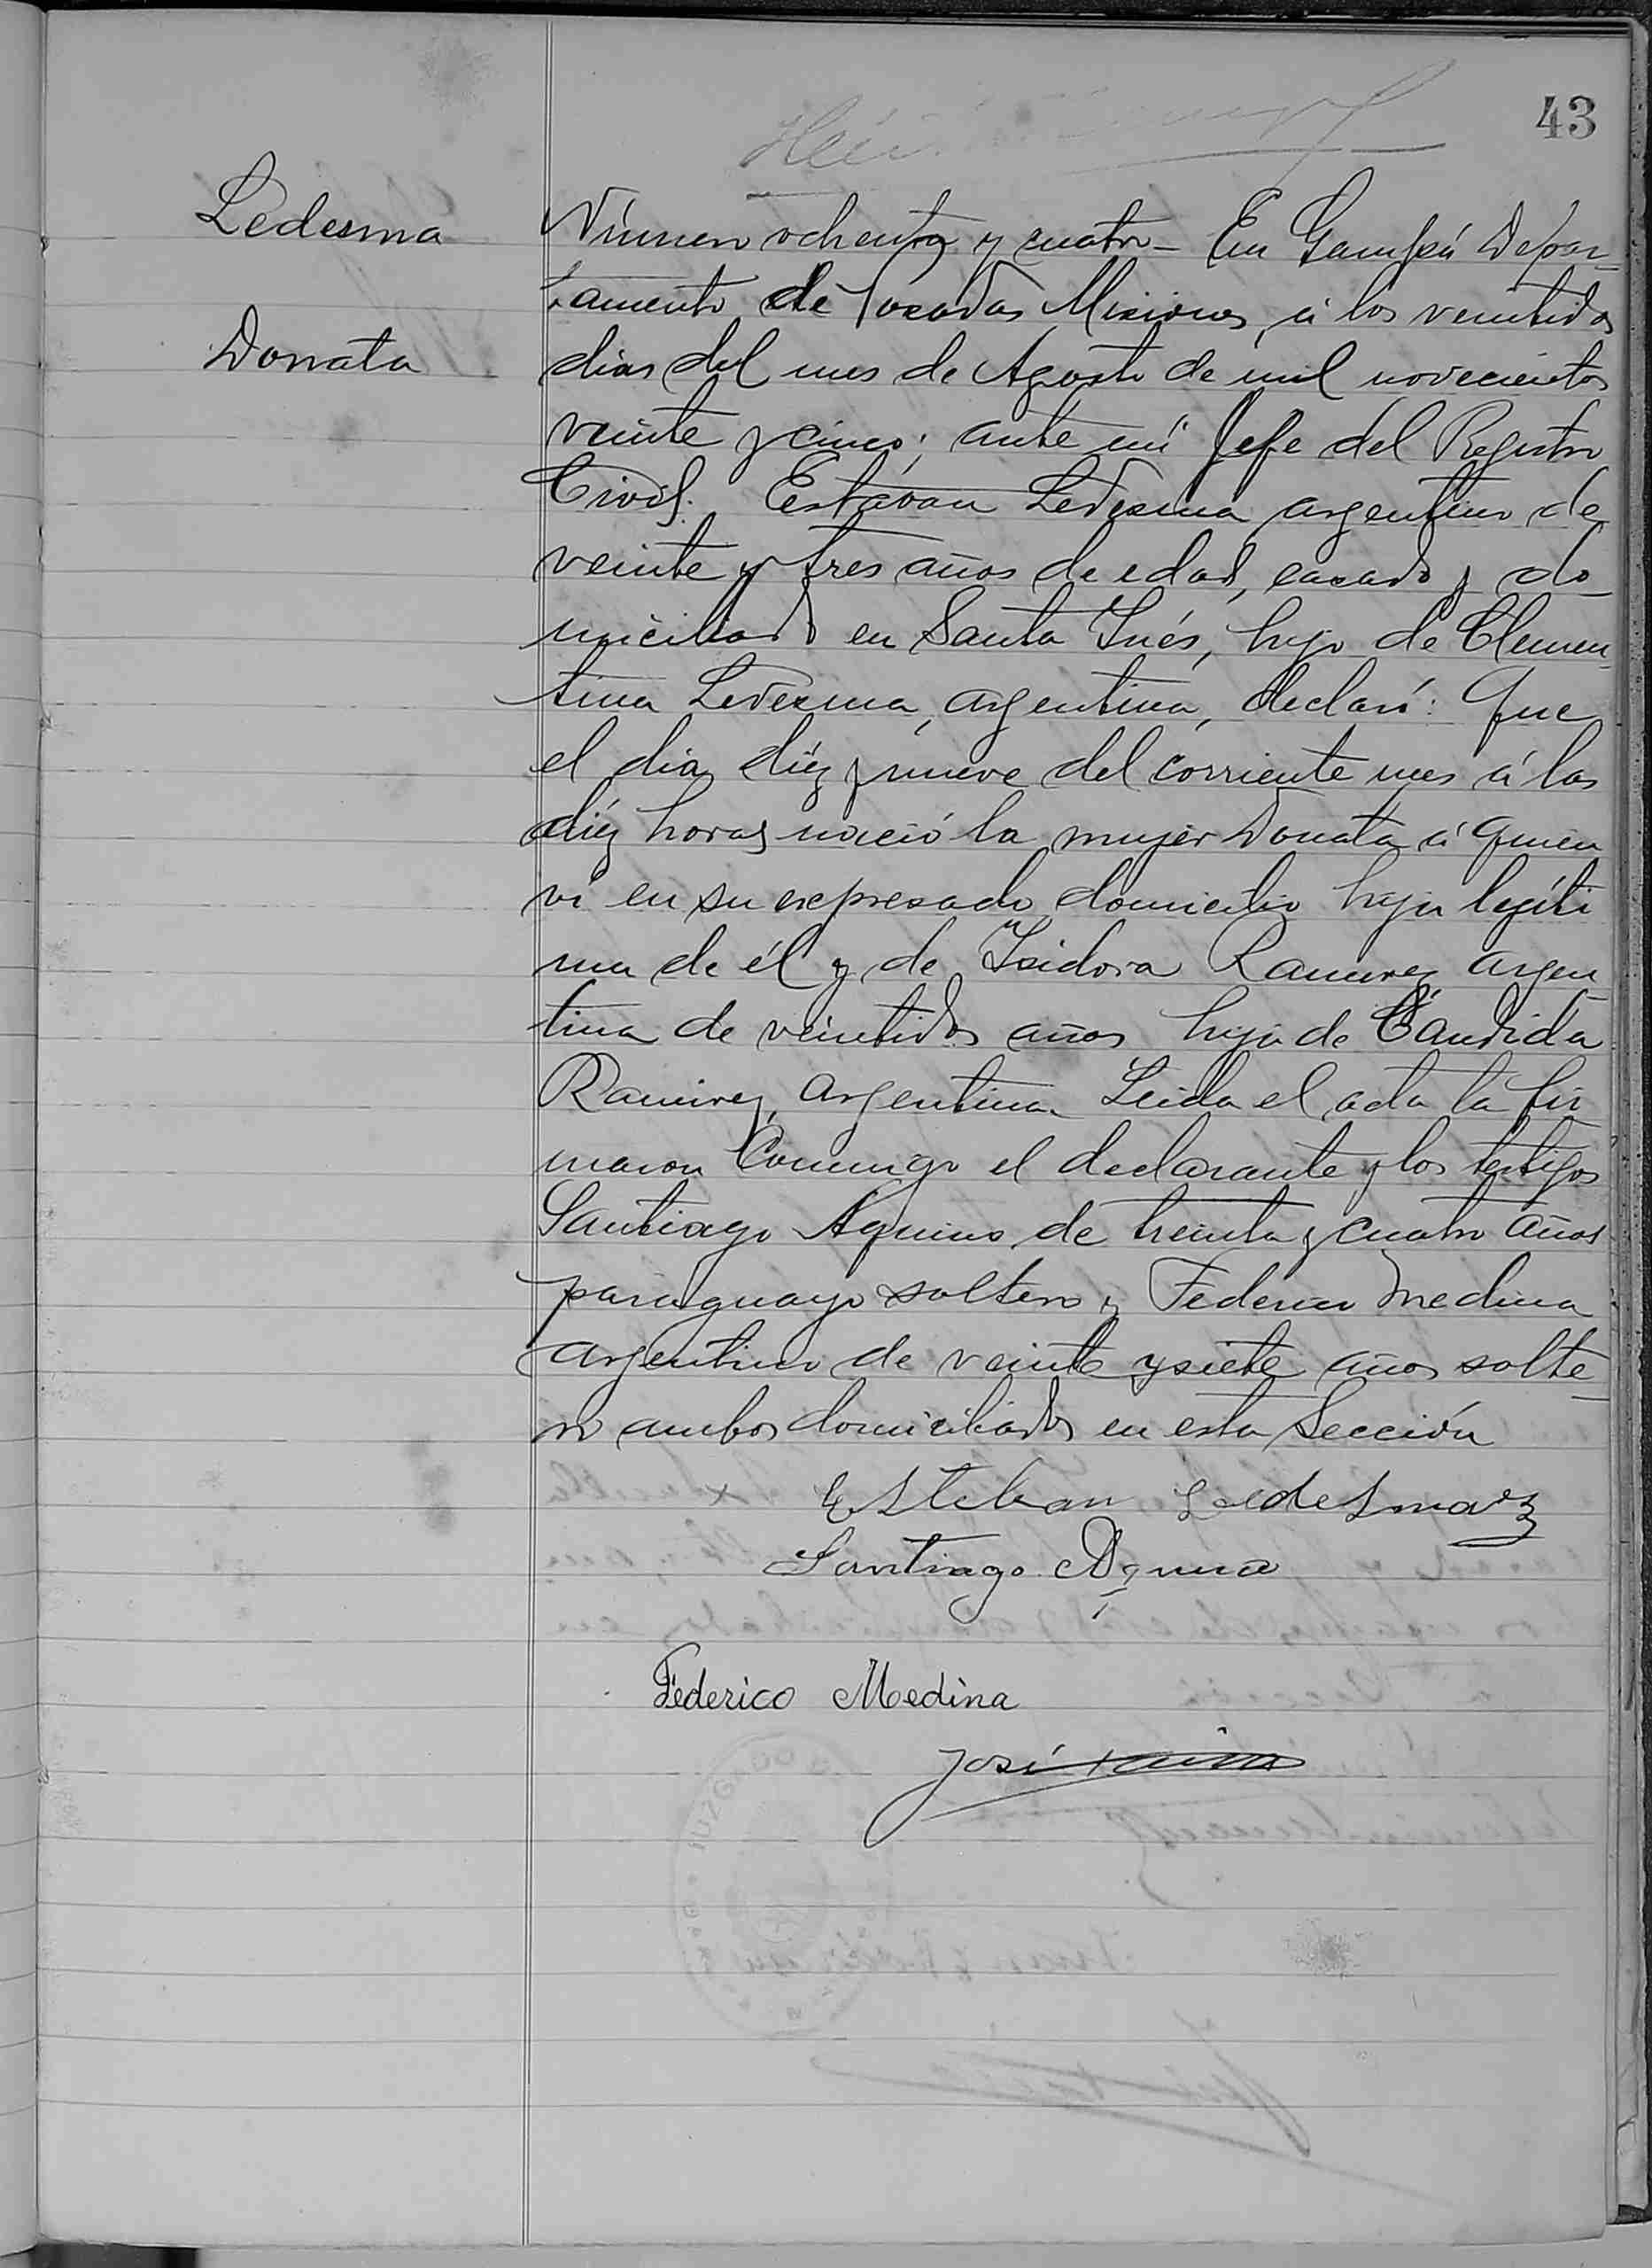 43
Ledesma
Donata
Número ochenta y cuatro - En Garupá Depar-
tamento de Posadas Misiones, á los veintidos
dias del mes de Agosto de mil novecientos
veinte y cinco; ante mi Jefe del Registro
Civil. Estevan Ledesma argentino de
veinte y tres años de edad, casado y do-
miciliado en Santa Inés, hijo de Clemen-
tina Ledesma, argentina, declaró: Que
el dia diéz y nueve del corriente mes á las
diéz horas nació la mujer Donata á quien
vi en su expresado domicilio hija legíti
ma de él y de Isidora Ramirez argen-
tina de veintidos años hija de Candida
Ramirez, argentina. Leida el acta la fir
maron Conmigo el declarante y los testigos
Santiago Aquino de treinta y cuatro años
paraguayo soltero y Federico Medina
argentino de veinte y siete años solte-
ro ambos domiciliados en esta Sección
Esteban Ledesma
Santiago Aquino
Federico Medina
José